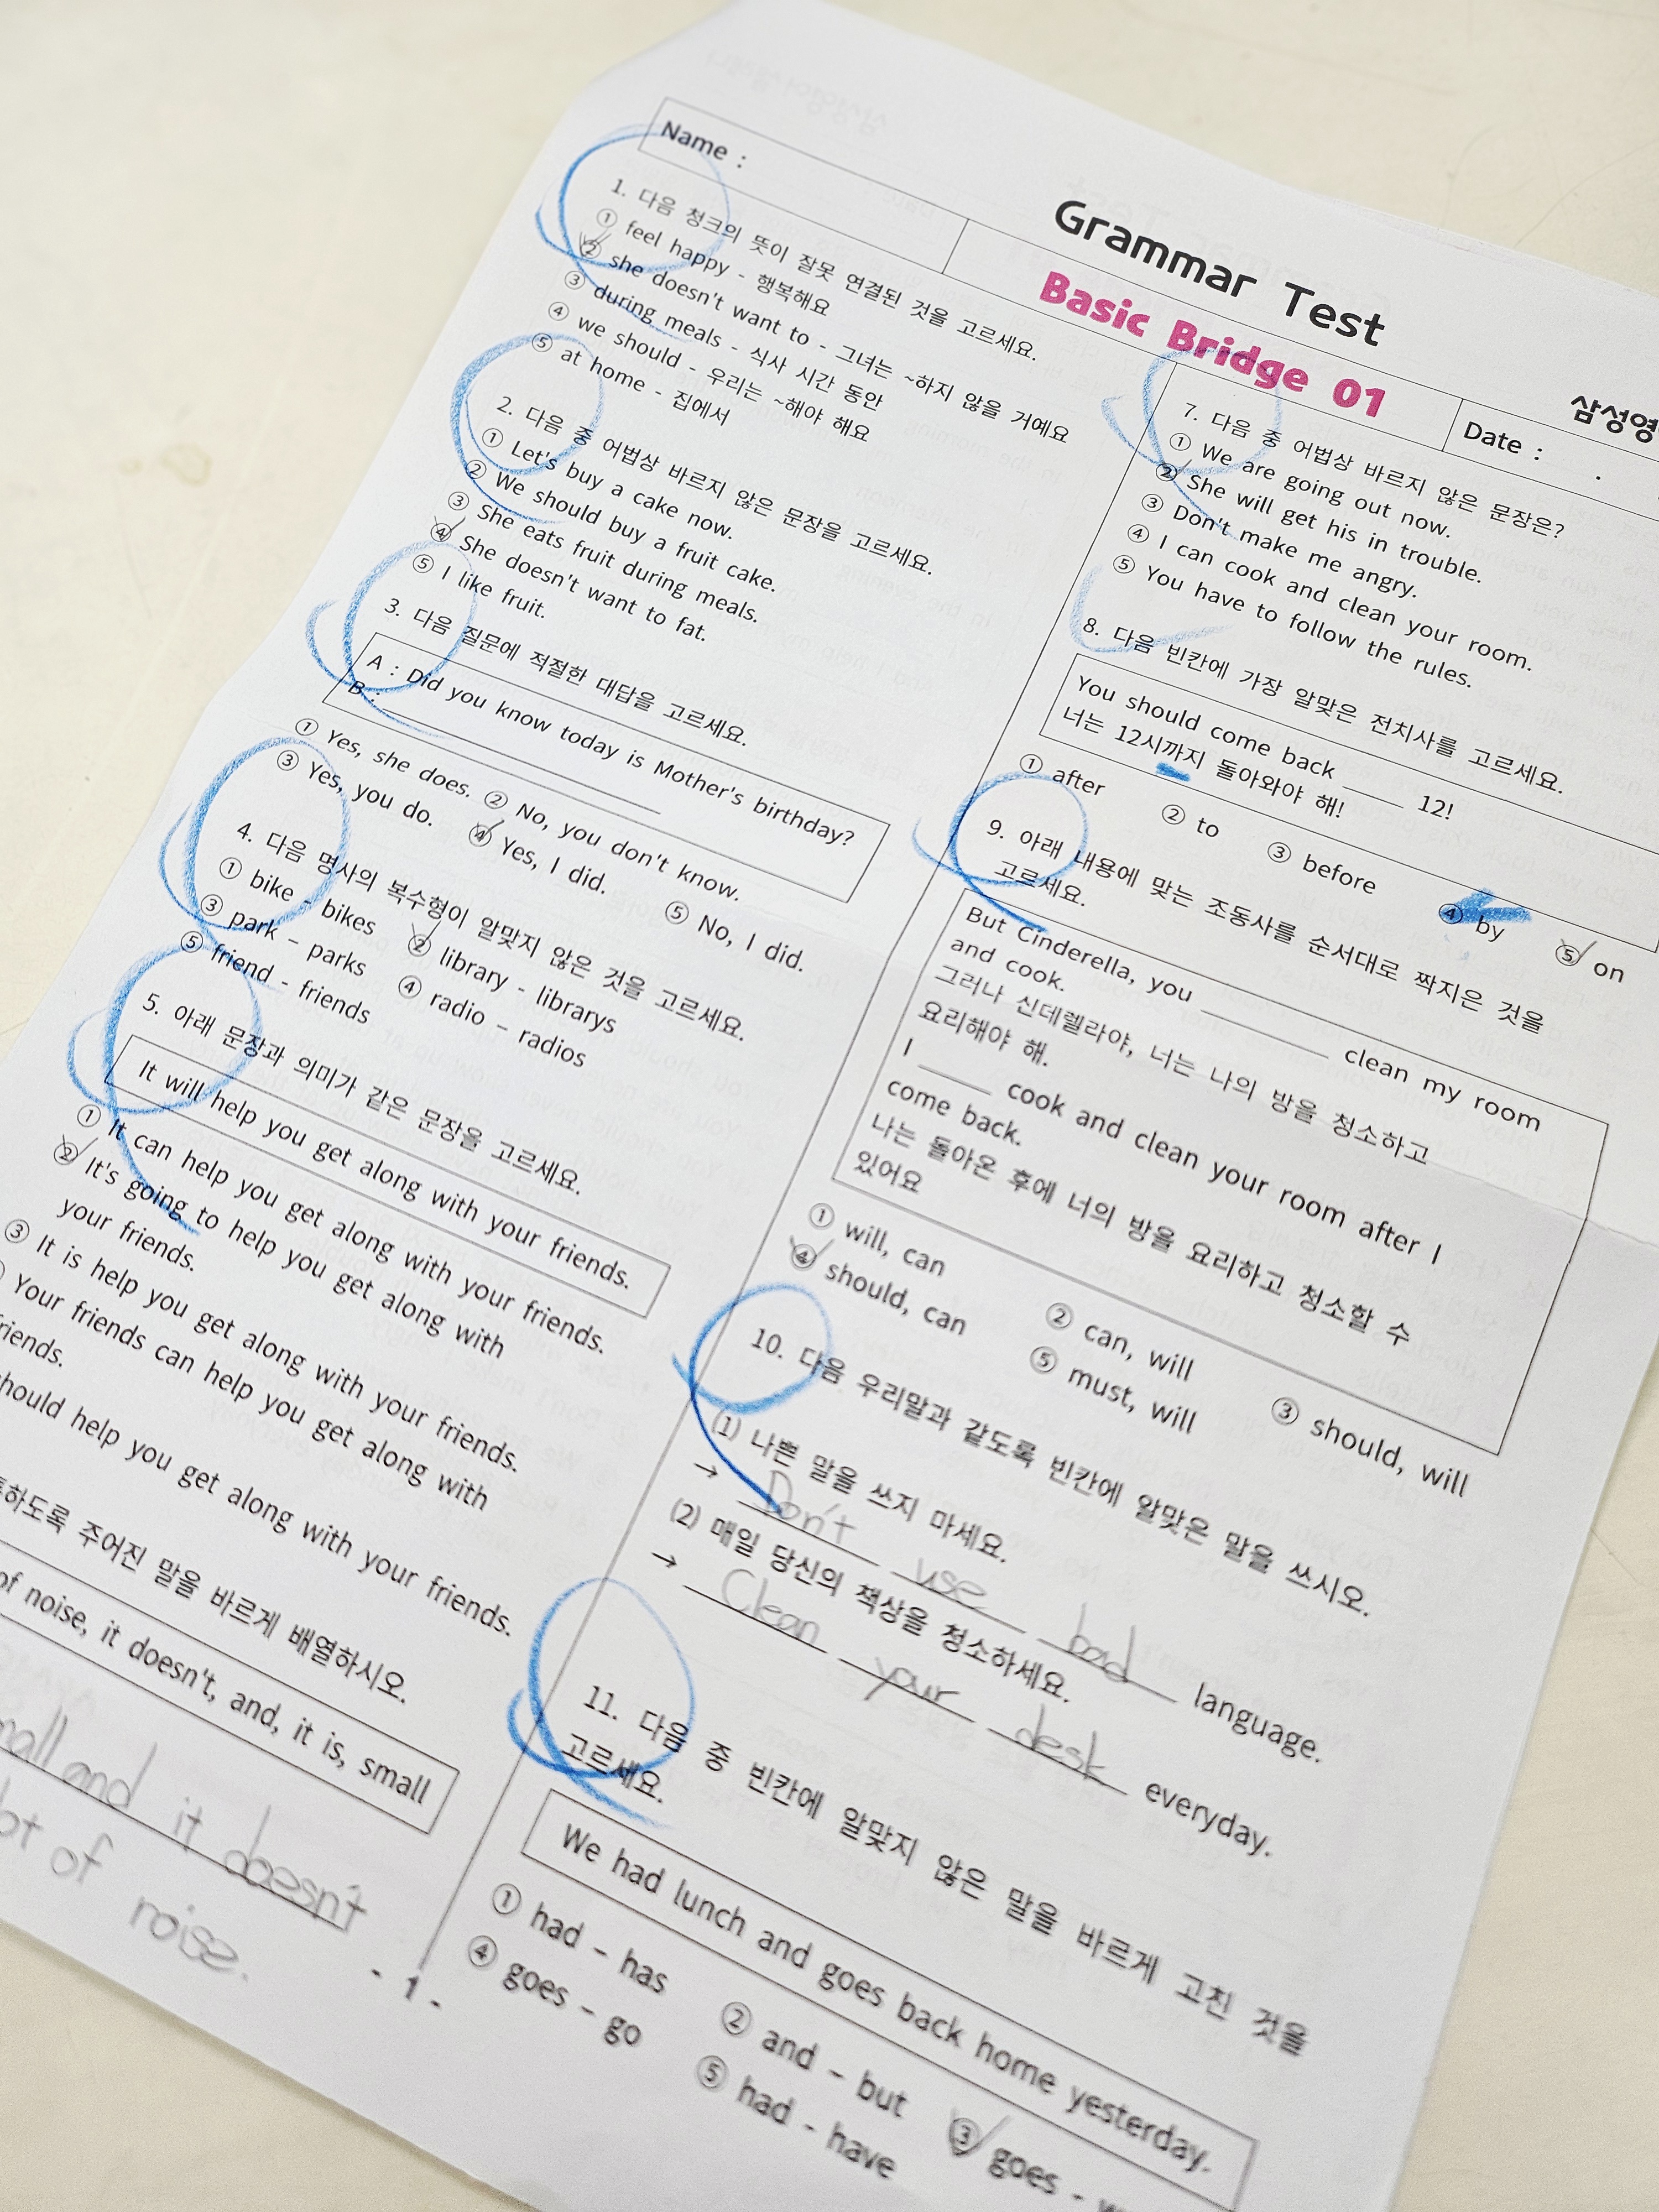 Grammar Test
Name :
Basic Bridge 01
삼성영
Date :
1. 다음 청크의 뜻이 잘못 연결된 것을 고르세요.
① feel happy - 행복해요
② she doesn't want to - 그녀는 ~하지 않을 거예요
③ during meals - 식사 시간 동안
④ we should - 우리는 ~해야 해요
⑤ at home - 집에서
2. 다음 중 어법상 바르지 않은 문장을 고르세요.
① Let's buy a cake now.
② We should buy a fruit cake.
③ She eats fruit during meals.
④ She doesn't want to fat.
⑤ I like fruit.
3. 다음 질문에 적절한 대답을 고르세요.
A : Did you know today is Mother's birthday?
B :
① Yes, she does. ② No, you don't know.
③ Yes, you do. ④ Yes, I did. ⑤ No, I did.
4. 다음 명사의 복수형이 알맞지 않은 것을 고르세요.
① bike - bikes ② library - librarys
③ park - parks ④ radio - radios
⑤ friend - friends
5. 아래 문장과 의미가 같은 문장을 고르세요.
It will help you get along with your friends.
① It can help you get along with your friends.
② It's going to help you get along with
your friends.
③ It is help you get along with your friends.
Your friends can help you get along with
friends.
should help you get along with your friends.
하도록 주어진 말을 바르게 배열하시오.
of noise, it doesn't, and, it is, small
small and it doesn't
lot of
noise.
- 1 -
7. 다음 중 어법상 바르지 않은 문장은?
① We are going out now.
② She will get his in trouble.
③ Don't make me angry.
④ I can cook and clean your room.
⑤ You have to follow the rules.
8. 다음 빈칸에 가장 알맞은 전치사를 고르세요.
You should come back ____ 12!
너는 12시까지 돌아와야 해!
① after ② to ③ before ④ by ⑤ on
9. 아래 내용에 맞는 조동사를 순서대로 짝지은 것을
고르세요.
But Cinderella, you ________ clean my room
and cook.
그러나 신데렐라야, 너는 나의 방을 청소하고
요리해야 해.
I ____ cook and clean your room after I
come back.
나는 돌아온 후에 너의 방을 요리하고 청소할 수
있어요
① will, can ② can, will ③ should, will
④ should, can ⑤ must, will
10. 다음 우리말과 같도록 빈칸에 알맞은 말을 쓰시오.
(1) 나쁜 말을 쓰지 마세요.
→ Don't use bad language.
(2) 매일 당신의 책상을 청소하세요.
→ Clean your desk everyday.
11. 다음 중 빈칸에 알맞지 않은 말을 바르게 고친 것을
고르세요.
We had lunch and goes back home yesterday.
① had - has ② and - but ③ goes -
④ goes - go ⑤ had - have